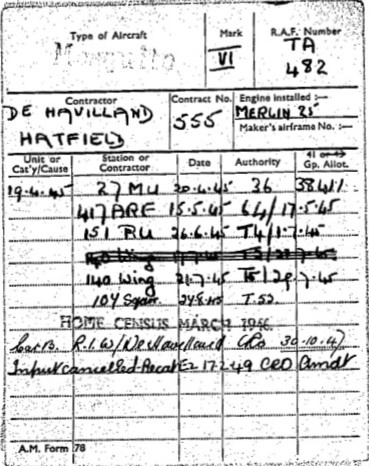 Type of Aircraft
Mosquito
Mark
VI
R.A.F. Number
TA
482
Contractor
DE HAVILLAND
HATFIELD
Contract No.
555
Engine installed :—
MERLIN 25
Maker's airframe No. :—
Unit or Cat'y/Cause Station or Contractor Date Authority 41 or 43 Gp. Allot.
19.4.45 27 MU 20.4.45 36 3841
417 ARF 15.5.45 64/17.5.45
151 RU 26.6.45 T4/1.7.45
140 Wing
140 Wing 21.7.45 T5/29.7.45
107 Sqdn. T.52.
HOME CENSUS MARCH 1946.
Cat B. R.I.W/De Havilland 30.10.47
Input cancelled Recat E2 17.2.49 CRD Amdt
A.M. Form 78